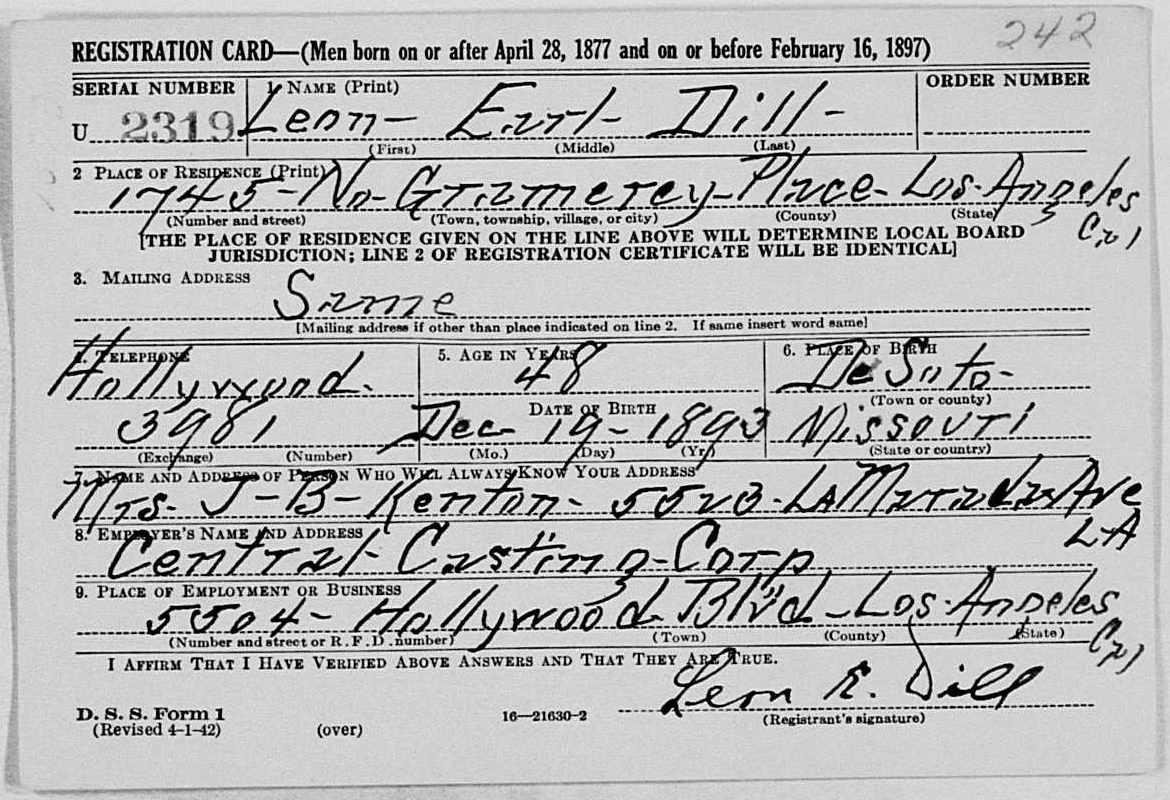 242
REGISTRATION CARD—(Men born on or after April 28, 1877 and on or before February 16, 1897)
SERIAL NUMBER
1. NAME (Print)
ORDER NUMBER
U 2319
Leon - Earl - Dill -
(First) (Middle) (Last)
2 PLACE OF RESIDENCE (Print)
1745 - No - Gramercy - Place - Los - Angeles
Cal
(Number and street) (Town, township, village, or city) (County) (State)
[THE PLACE OF RESIDENCE GIVEN ON THE LINE ABOVE WILL DETERMINE LOCAL BOARD
JURISDICTION; LINE 2 OF REGISTRATION CERTIFICATE WILL BE IDENTICAL]
3. MAILING ADDRESS
Same
[Mailing address if other than place indicated on line 2. If same insert word same]
4. TELEPHONE
Hollywood.
3981
(Exchange) (Number)
5. AGE IN YEARS
48
DATE OF BIRTH
Dec - 19 - 1893
(Mo.) (Day) (Yr.)
6. PLACE OF BIRTH
De Soto -
(Town or county)
Missouri
(State or country)
7. NAME AND ADDRESS OF PERSON WHO WILL ALWAYS KNOW YOUR ADDRESS
Mrs. J - B - Kenton - 5523 - La Mirada Ave
LA
8. EMPLOYER'S NAME AND ADDRESS
Central - Casting - Corp
9. PLACE OF EMPLOYMENT OR BUSINESS
5504 - Hollywood Blvd - Los - Angeles
Cal
(Number and street or R. F. D. number) (Town) (County) (State)
I AFFIRM THAT I HAVE VERIFIED ABOVE ANSWERS AND THAT THEY ARE TRUE.
Leon E. Dill
D. S. S. Form 1
(Revised 4-1-42)
(over)
16—21630-2
(Registrant's signature)